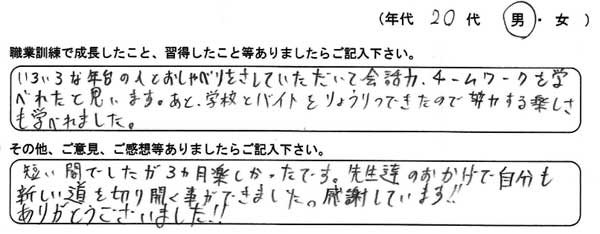 (年代 20代 男・女 )
職業訓練で成長したこと、習得したこと等ありましたらご記入下さい。
いろいろな年台の人とおしゃべりをさしていただいて会話力、チームワークも学
べれたと思います。あと、学校とバイトをりょうりつできたので努力する楽しさ
も学べれました。
その他、ご意見、ご感想等ありましたらご記入下さい。
短い間でしたが3ヵ月楽しかったです。先生達のおかげで自分も
新しい道を切り開く事ができました。感謝しています!!
ありがとうございました!!